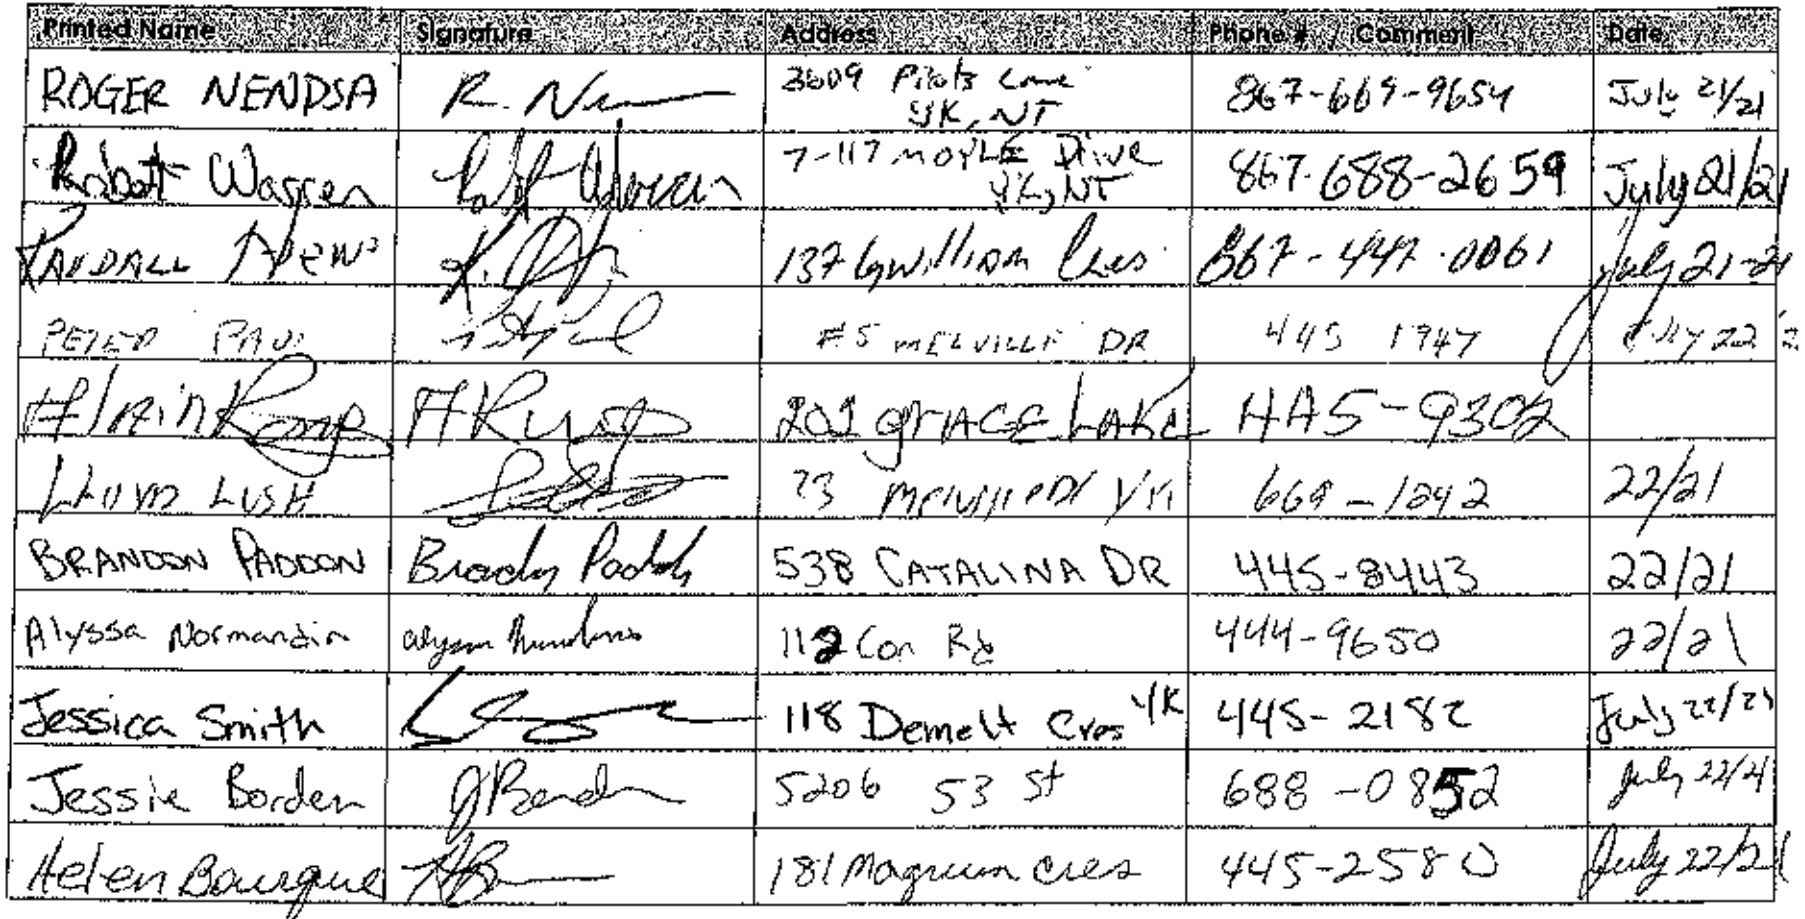 Printed Name Signature Address Phone # / Comment Date
ROGER NENDSA R. N 3609 Pilots Lane YK, NT 867-669-9654 July 21/21
Robert Warren 7-117 MOYLE Drive YK, NT 867-688-2659 July 21/21
RANDALL 137 Gwilliam Cres 867-447-0061 July 21-21
PETER PAUL #5 MELVILLE DR 445 1747 July 22
Alain 202 GRACE LAKE 445-9302
LLOYD LUSH 23 Melville Dr YK 669-1242 22/21
BRANDON PADDON 538 CATALINA DR 445-8443 22/21
Alyssa Normandin 112 Con Rd 444-9650 22/21
Jessica Smith 118 Demelt Cres YK 445-2182 July 22/21
Jessie Borden J Borden 5206 53 St 688-0852 July 22/21
Helen Bourque HB 181 Magrum Cres 445-2580 July 22/21